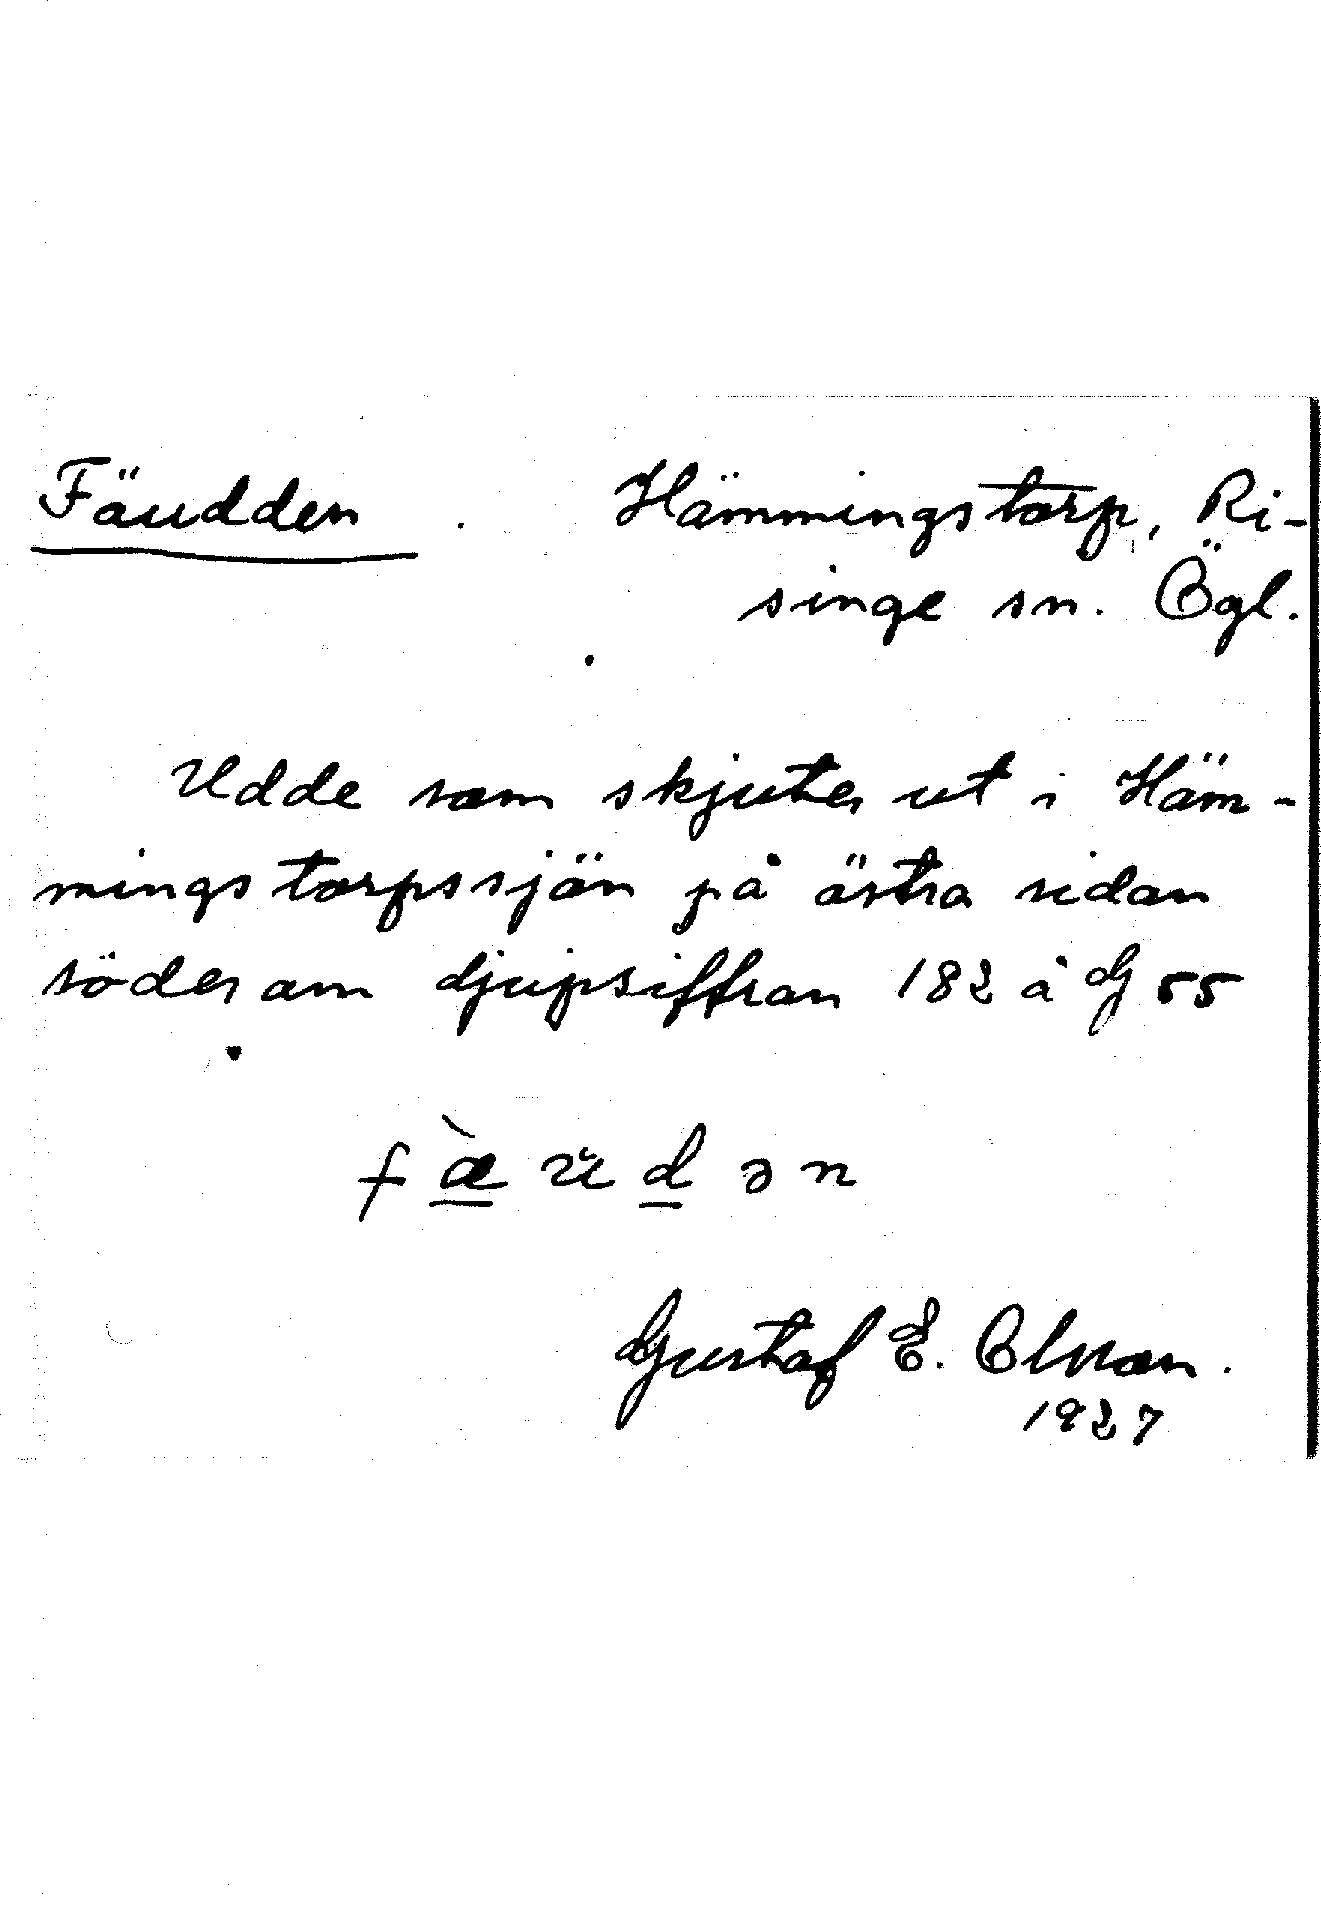 Fäudden . Hämmingstorp, Ri-
singe sn. Ögl.
Udde som skjuter ut i Häm-
mingstorpssjön på östra sidan
söder om djupsiffran 182 å G 55
f æ̀ u̇ d ə n
Gustaf E. Olsson.
1927